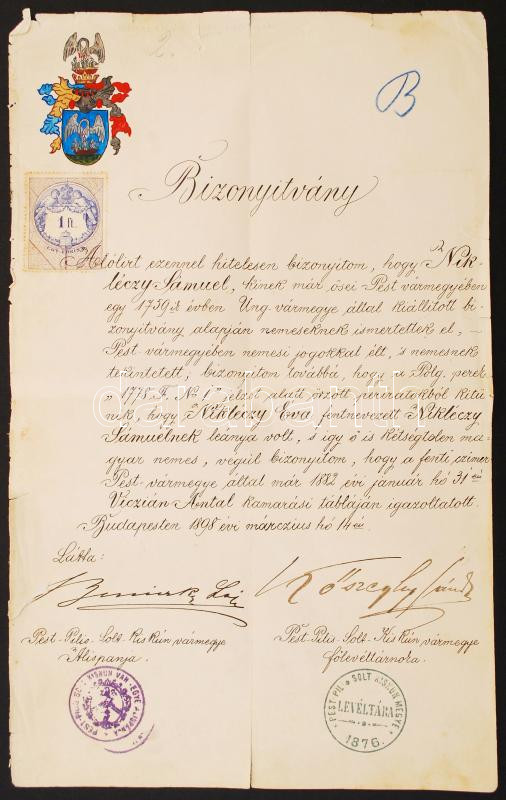 2.
B
Bizonyitvány
1 ft.
Alólirt ezennel hitelesen bizonyitom, hogy Nik-
léczy Sámuel, kinek már ősei Pest vármegyében
egy 1759 ik évben Ung vármegye által kiállitott bi-
zonyitvány alapján nemeseknek ismertettek el, –
Pest vármegyében nemesi jogokkal élt, s nemesnek
tekintetett, bizonyitom továbbá, hogy a Polg. perek
„1778. F. No 1” jelzet alatt őrzött periratokból kitü-
nik, hogy Nikléczy Éva fentnevezett Nikléczy
Sámuelnek leánya volt, s igy ő is kétségtelen ma-
gyar nemes, végül bizonyitom, hogy a fenti czimer
Pest vármegye által már 1882 évi január hó 31 én
Viczián Antal kamarási tábláján igazoltatott.
Budapesten 1898 évi márczius hó 14 én
Látta:
Kőszeghy Sándor
Pest-Pilis-Solt-Kiskún vármegye
Alispánja.
Pest-Pilis-Solt-Kiskún vármegye
főlevéltárnoka.
PEST PIL. SOLT KISKUN MEGYE
LEVÉLTÁRA
1876.
darabanth